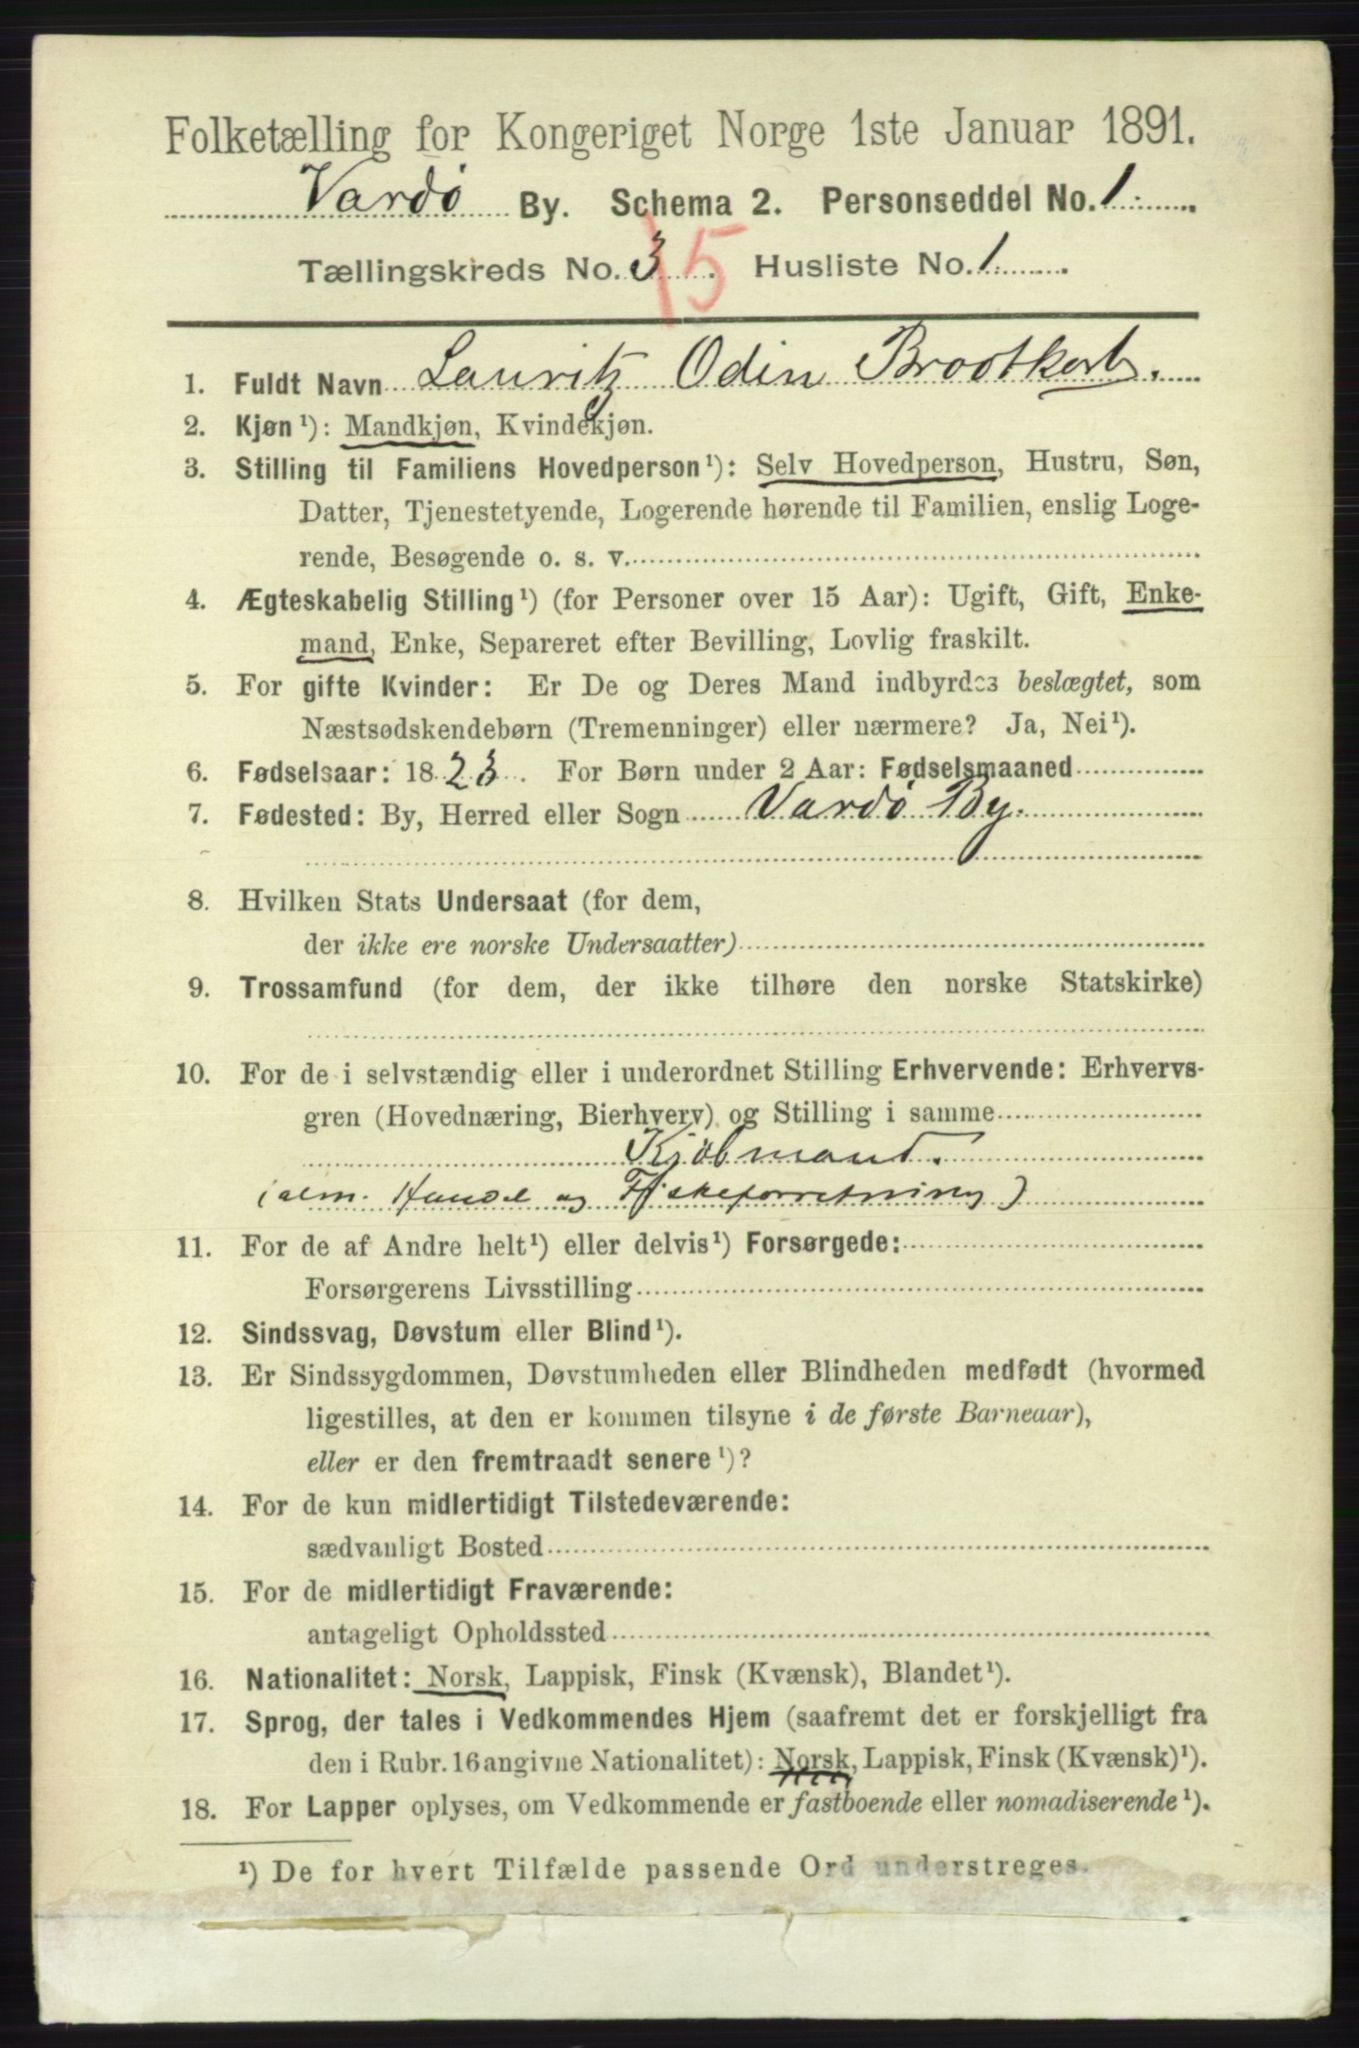 Folketælling for Kongeriget Norge 1ste Januar 1891.
Vardö By. Schema 2. Personseddel No. 1
15
Tællingskreds No. 3. Husliste No. 1
1. Fuldt Navn Lauritz Odin Brodtkorb.
2. Kjøn¹): Mandkjøn, Kvindekjøn.
3. Stilling til Familiens Hovedperson¹): Selv Hovedperson, Hustru, Søn,
Datter, Tjenestetyende, Logerende hørende til Familien, enslig Loge-
rende, Besøgende o. s. v.
4. Ægteskabelig Stilling¹) (for Personer over 15 Aar): Ugift, Gift, Enke-
mand, Enke, Separeret efter Bevilling, Lovlig fraskilt.
5. For gifte Kvinder: Er De og Deres Mand indbyrdes beslægtet, som
Næstsødskendebørn (Tremenninger) eller nærmere? Ja, Nei¹).
6. Fødselsaar: 1823. For Børn under 2 Aar: Fødselsmaaned
7. Fødested: By, Herred eller Sogn Vardö By.
8. Hvilken Stats Undersaat (for dem,
der ikke ere norske Undersaatter)
9. Trossamfund (for dem, der ikke tilhøre den norske Statskirke)
10. For de i selvstændig eller i underordnet Stilling Erhvervende: Erhvervs-
gren (Hovednæring, Bierhverv) og Stilling i samme
Kjöbmand.
(alm. Handel og Fiskeforretning)
11. For de af Andre helt¹) eller delvis¹) Forsørgede:
Forsørgerens Livsstilling
12. Sindssvag, Døvstum eller Blind¹).
13. Er Sindssygdommen, Døvstumheden eller Blindheden medfødt (hvormed
ligestilles, at den er kommen tilsyne i de første Barneaar),
eller er den fremtraadt senere¹)?
14. For de kun midlertidigt Tilstedeværende:
sædvanligt Bosted
15. For de midlertidigt Fraværende:
antageligt Opholdssted
16. Nationalitet: Norsk, Lappisk, Finsk (Kvænsk), Blandet¹).
17. Sprog, der tales i Vedkommendes Hjem (saafremt det er forskjelligt fra
den i Rubr. 16 angivne Nationalitet): Norsk, Lappisk, Finsk (Kvænsk)¹).
18. For Lapper oplyses, om Vedkommende er fastboende eller nomadiserende¹).
¹) De for hvert Tilfælde passende Ord understreges.